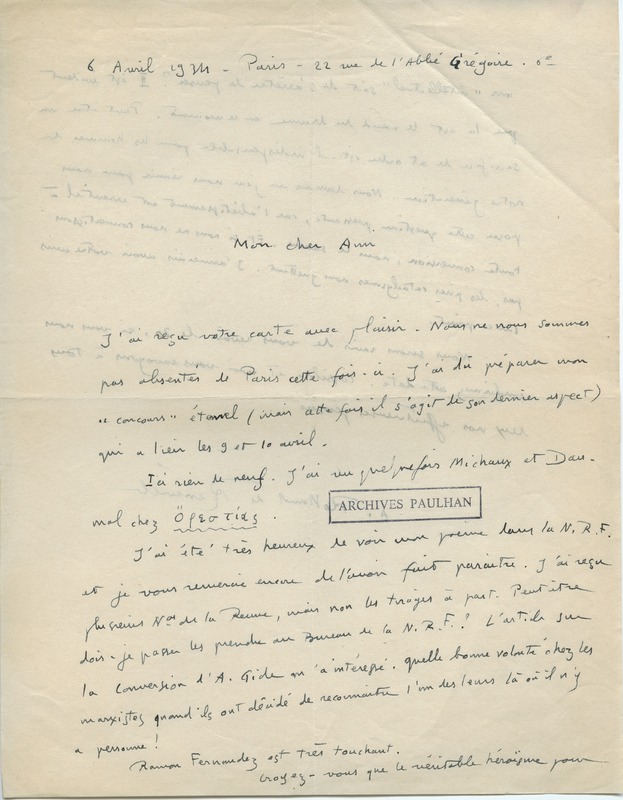 6 Avril 1934 - Paris - 22 rue de l'Abbé Grégoire. 6e
Mon cher Ami
J'ai reçu votre carte avec plaisir. Nous ne nous sommes
pas absentés de Paris cette fois-ci. J'ai dû préparer mon
"concours" éternel (mais cette fois il s'agit de son dernier aspect)
qui a lieu les 9 et 10 avril.
Ici rien de neuf. J'ai vu quelquefois Michaux et Dau-
mal chez Ὀρεστίας.
ARCHIVES PAULHAN
J'ai été très heureux de voir mon poème dans la N.R.F.
et je vous remercie encore de l'avoir fait paraître. J'ai reçu
plusieurs Nos de la Revue, mais non les tirages à part. Peut-être
dois-je passer les prendre au Bureau de la N.R.F.? L'article sur
la conversion d'A. Gide m'a intéressé. quelle bonne volonté chez les
marxistes quand ils ont décidé de reconnaître l'un des leurs là où il n'y
a personne!
Ramon Fernandez est très touchant.
Croyez-vous que le véritable héroïsme pour